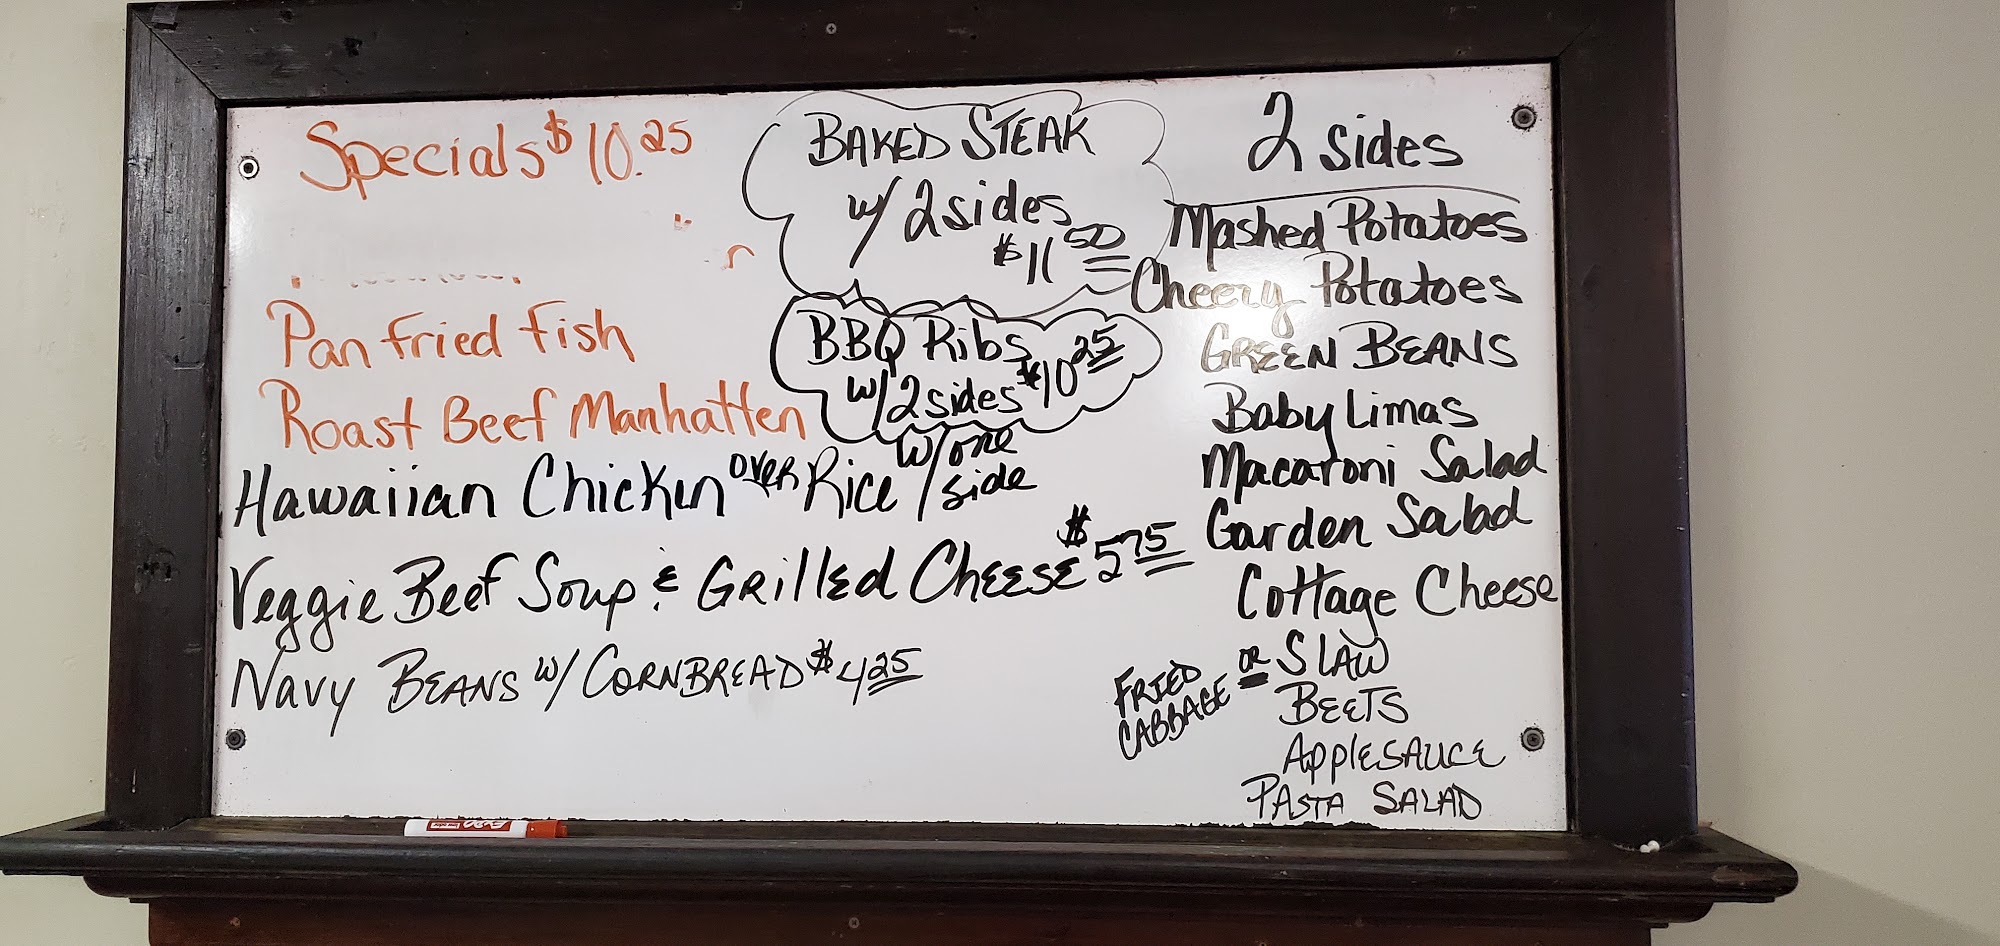 Specials $10.25
Pan Fried Fish
Roast Beef Manhatten
Hawaiian Chicken over Rice w/one side
Veggie Beef Soup & Grilled Cheese $5.75
Navy Beans w/ Cornbread $4.25
BAKED STEAK
w/ 2 sides
$11.50
BBQ Ribs
w/ 2 sides $10.25
2 sides
Mashed Potatoes
Cheezy Potatoes
GREEN BEANS
Baby Limas
Macaroni Salad
Garden Salad
Cottage Cheese
FRIED CABBAGE OR SLAW
BEETS
APPLESAUCE
PASTA SALAD
EXPO